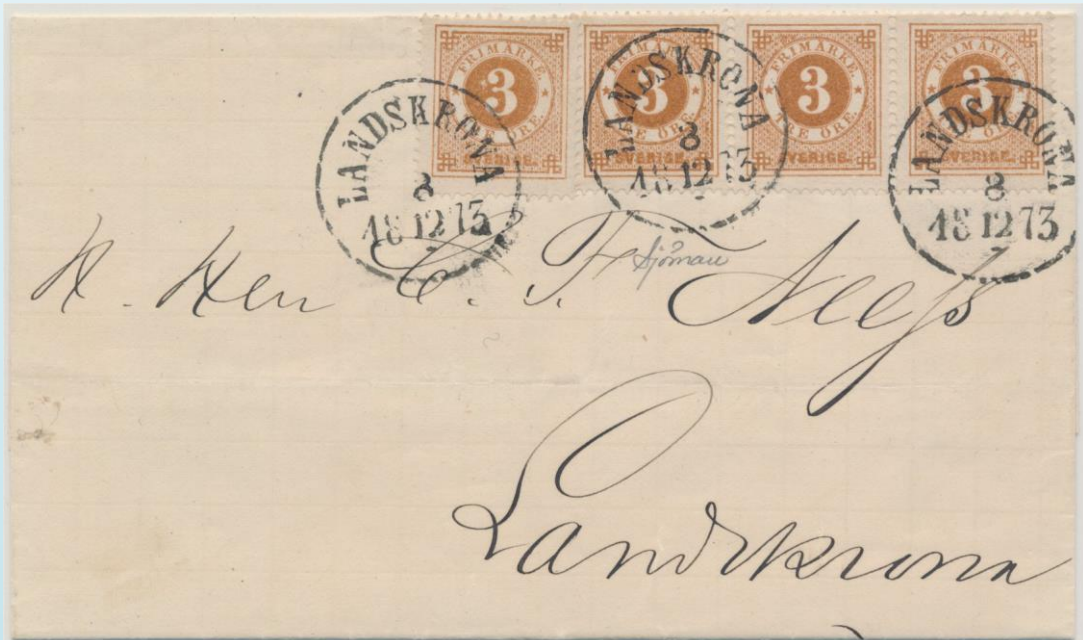 FRIMÄRKE.
3
TRE ÖRE.
SVERIGE.
FRIMÄRKE.
3
TRE ÖRE.
SVERIGE.
FRIMÄRKE.
3
TRE ÖRE.
SVERIGE.
FRIMÄRKE.
3
TRE ÖRE.
SVERIGE.
LANDSKRONA
8
18 12 73
LANDSKRONA
8
18 12 73
LANDSKRONA
8
18 12 73
H. Herr C. F. Neess
Sjöman
Landskrona